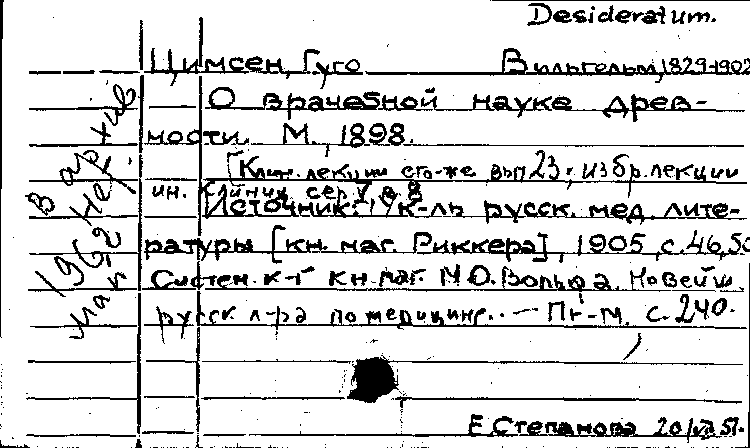 Desideratum.
Цимсен, Гуго Вильгельм, 1829-1902
О врачебной науке древ-
ности. М., 1898.
[Клин. лекции его-же вып 23; избр. лекции
ин. клиник сер. V в. 8
Источник: Ук-ль русск. мед. лите-
ратуры [кн. маг. Риккера], 1905, с. 46, 50
Систем. к-г кн. маг. М.О. Вольфа. Новейш.
русск л-ра по медицине... — Пг-М. с. 240.
Е. Степанова 20/VII 51.
В архиве
нет.
1962
май